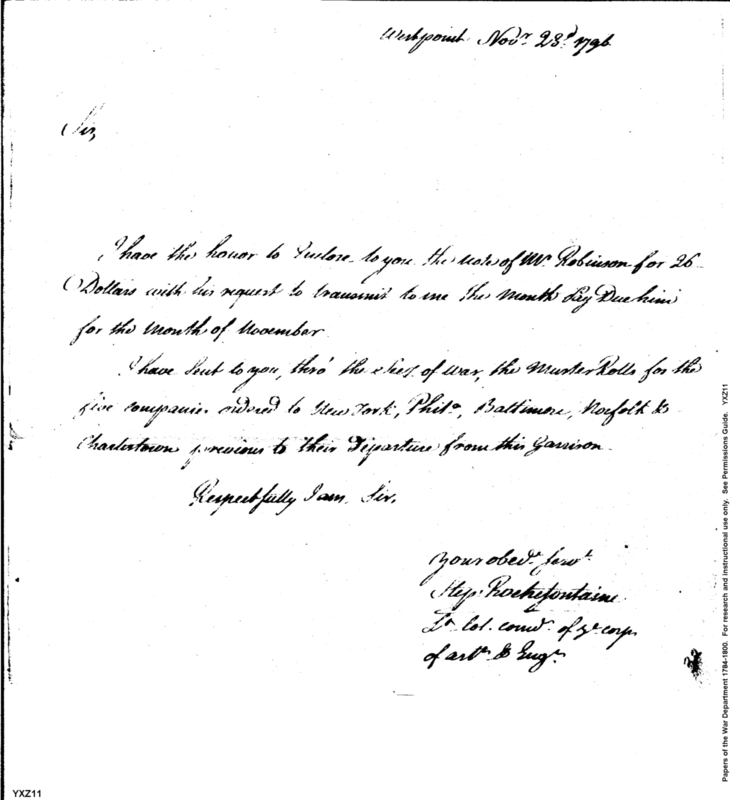 Westpoint Novr. 23d. 1796
Sir,
I have the honor to Enclose to you the note of Mr. Robinson for 26
Dollars with his request to transmit to me the Month Pay Due him
for the Month of November
I have Sent to you, thro' the of War, the Muster Rolls for the
five companies ordered to New York, Phila., Baltimore, Norfolk &
Charlestown previous to their Departure from this Garrison.
Respectfully I am, Sir,
Your obedt. Servt.
Step. Rochefontaine
Lt. Col. comdt. of ye corps
of arts. & Engrs.
YXZ11
Papers of the War Department 1784-1800. For research and instructional use only. See Permissions Guide. YXZ11